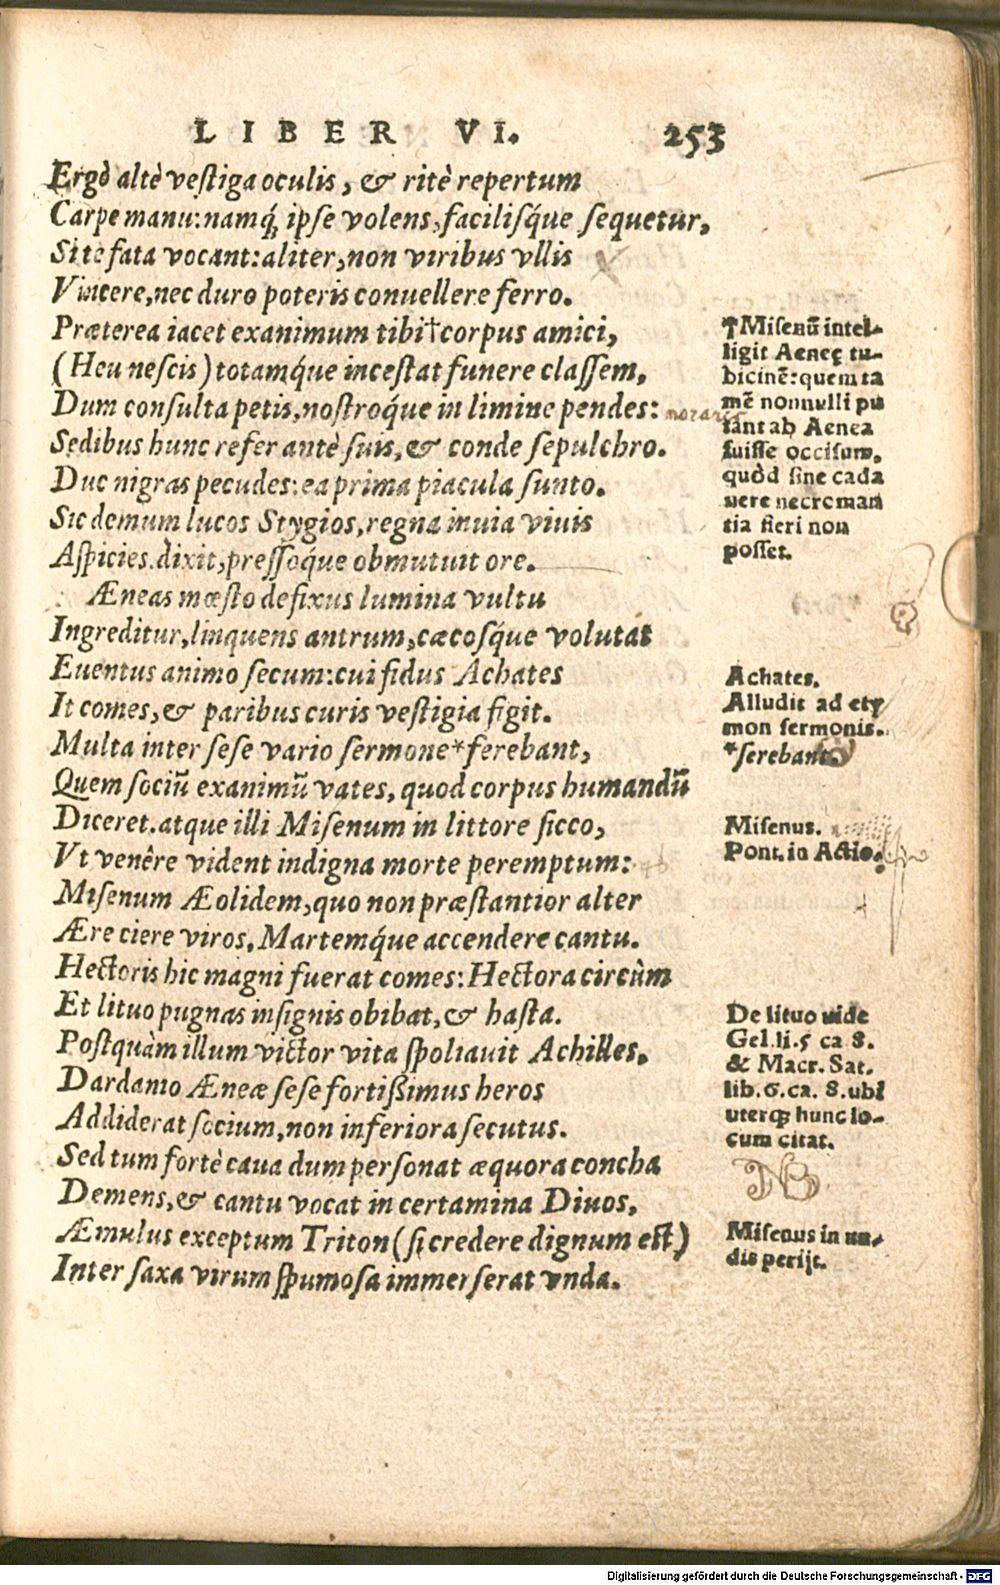 LIBER VI. 253
Ergò altè vestiga oculis, & ritè repertum
Carpe manu: namq́; ipse volens, facilisq́ue sequetur,
Si te fata vocant: aliter, non viribus vllis
Vincere, nec duro poteris conuellere ferro.
Præterea iacet exanimum tibi†corpus amici,
(Heu nescis) totamq́ue incestat funere classem,
Dum consulta petis, nostroq́ue in limine pendes: moraris
Sedibus hunc refer antè suis, & conde sepulchro.
Duc nigras pecudes: ea prima piacula sunto.
Sic demum lucos Stygios, regna inuia viuis
Aspicies. dixit, pressoq́ue obmutuit ore.
Æneas mœsto defixus lumina vultu
Ingreditur, linquens antrum, cæcosq́ue volutat
Euentus animo secum: cui fidus Achates
It comes, & paribus curis vestigia figit.
Multa inter sese vario sermone*ferebant,
Quem sociũ exanimũ vates, quod corpus humandũ
Diceret. atque illi Misenum in littore sicco,
Vt venêre vident indigna morte peremptum:
Misenum Æolidem, quo non præstantior alter
Ære ciere viros, Martemq́ue accendere cantu.
Hectoris hic magni fuerat comes: Hectora circùm
Et lituo pugnas insignis obibat, & hasta.
Postquàm illum victor vita spoliauit Achilles,
Dardanio Æneæ sese fortißimus heros
Addiderat socium, non inferiora secutus.
Sed tum fortè caua dum personat æquora concha
Demens, & cantu vocat in certamina Diuos,
Æmulus exceptum Triton (si credere dignum est)
Inter saxa virum spumosa immerserat vnda.
†Misenũ intel-
ligit Aeneę tu-
bicinẽ: quem ta
mẽ nonnulli pu
tant ab Aenea
fuisse occisum,
quòd sine cada
uere necroman
tia fieri non
posset.
Achates.
Alludit ad ety
mon sermonis.
*serebant
Misenus.
Pont. in Actio.
De lituo uide
Gel. li. 5 ca 8.
& Macr. Sat.
lib. 6. ca. 8. ubi
uterq; hunc lo-
cum citat.
NB
Misenus in un-
dis perijt.
Digitalisierung gefördert durch die Deutsche Forschungsgemeinschaft - DFG